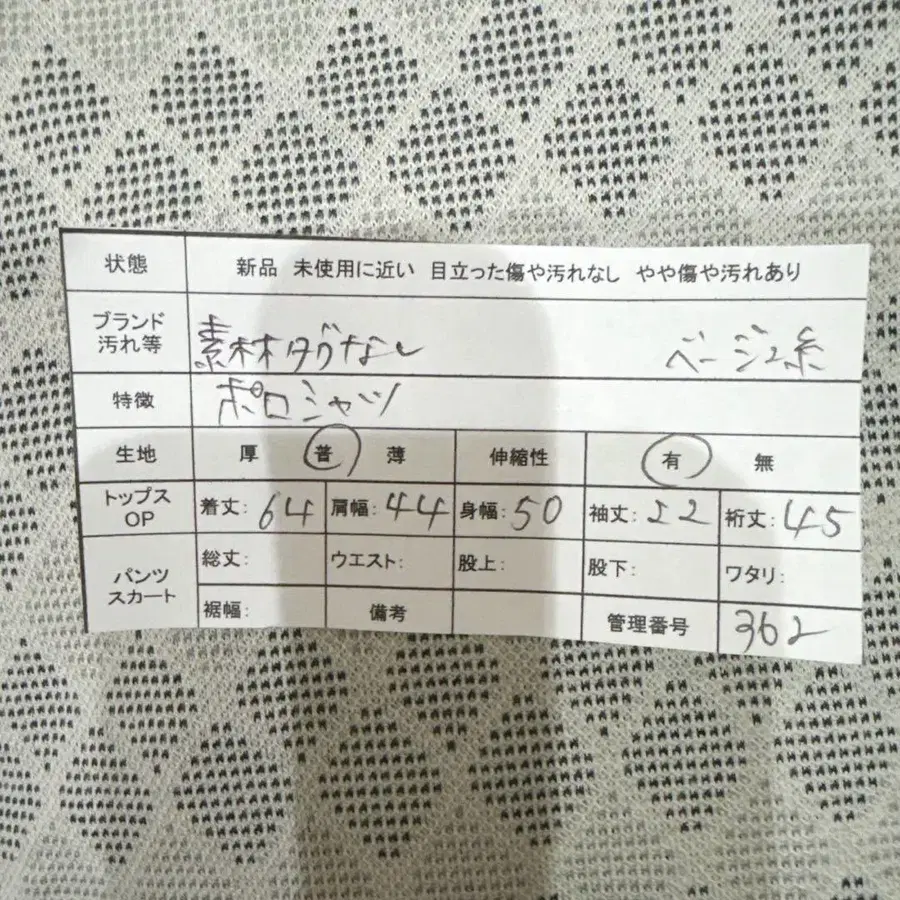 状態 新品 未使用に近い 目立った傷や汚れなし やや傷や汚れあり
ブランド
汚れ等 素材タグなし ベージュ系
特徴 ポロシャツ
生地 厚 普 薄 伸縮性 有 無
トップス
OP 着丈: 64 肩幅: 44 身幅: 50 袖丈: 22 裄丈: 45
パンツ
スカート 総丈: ウエスト: 股上: 股下: ワタリ:
裾幅: 備考 管理番号 362